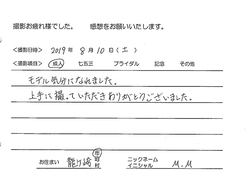 撮影お疲れ様でした。 感想をお願いいたします。
<撮影日時> 2019年 8月 10日(土)
<撮影項目> 成人 七五三 ブライダル 記念 その他
モデル気分になれました。
上手に撮っていただきありがとうございました。
お住まい 龍ケ崎 市町村 ニックネーム イニシャル M.M